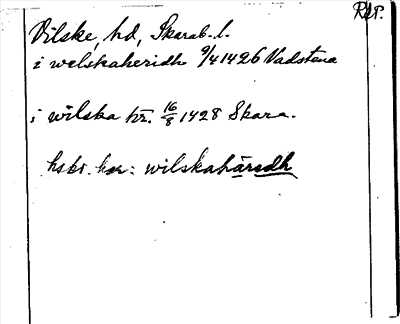 Rep.
Vilske, hd, Skarab. l.
i welskaheridh 9/4 1426 Vadstena
i wilska hr. 16/8 1428 Skara.
hskr. har: wilskahäradh